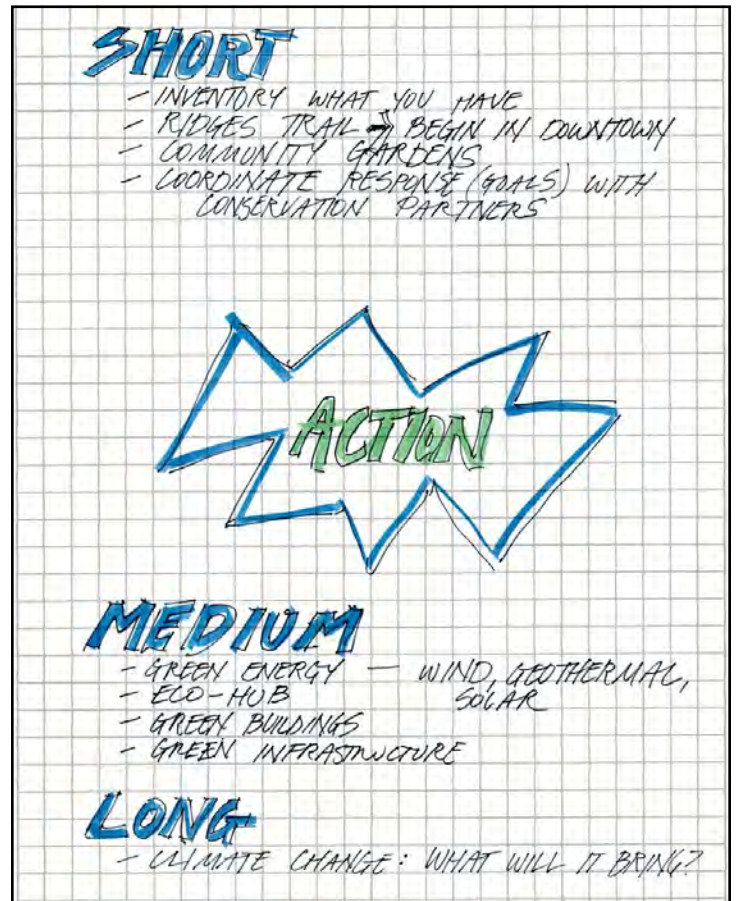 SHORT
- INVENTORY WHAT YOU HAVE
- RIDGES TRAIL → BEGIN IN DOWNTOWN
- COMMUNITY GARDENS
- COORDINATE RESPONSE (GOALS) WITH
CONSERVATION PARTNERS
ACTION
MEDIUM
- GREEN ENERGY — WIND, GEOTHERMAL,
SOLAR
- ECO-HUB
- GREEN BUILDINGS
- GREEN INFRASTRUCTURE
LONG
- CLIMATE CHANGE: WHAT WILL IT BRING?